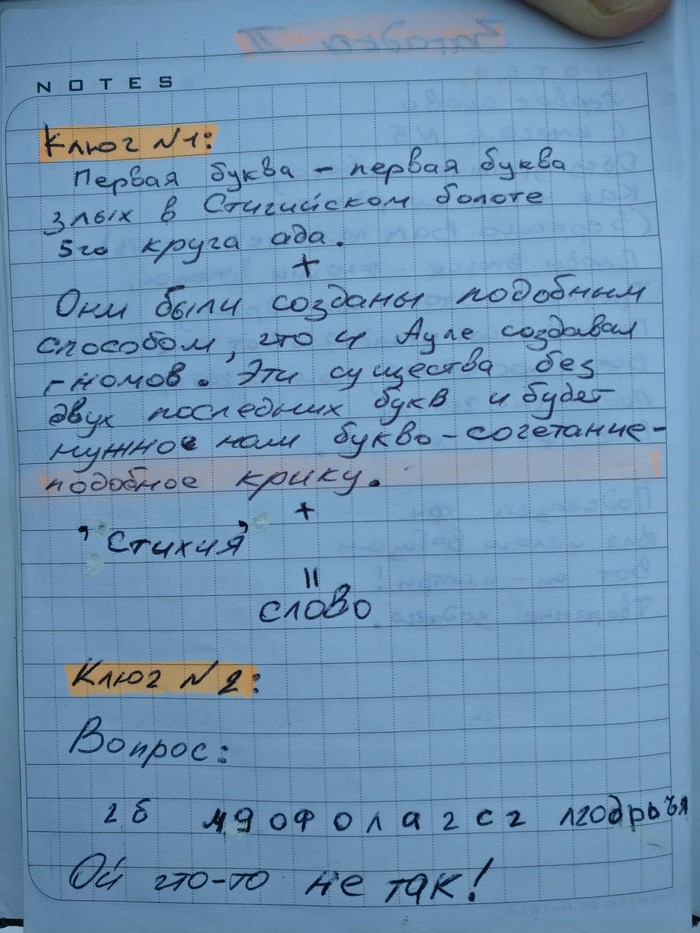 NOTES
Ключ №1:
Первая буква – первая буква
злых в Стигийском болоте
5го круга ада.
+
Они были созданы подобным
способом, что и Ауле создавал
гномов. Эти существа без
двух последних букв и будет
нужное нам букво-сочетание-
подобное крику.
+
"Стихия"
=
слово
Ключ №2:
Вопрос:
гб мдофолагсг лгодръъя
Ой что-то не так!